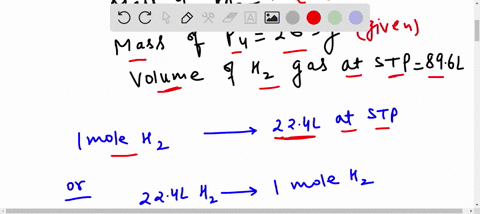 Mass of P₄ = g (given)
Volume of H₂ gas at STP = 89.6L
1 mole H₂ → 22.4L at STP
or 22.4L H₂ → 1 mole H₂